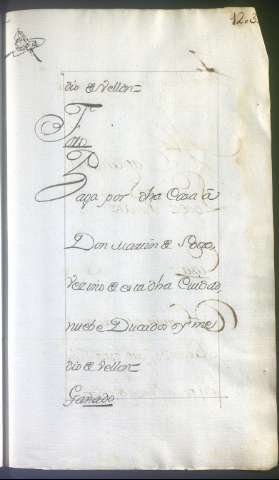 dio de Vellon=
Paga por dha Casa à
Don Martin de
Vezino de esta dha Ciudad,
nuebe Ducados y me
dio de Vellon=
Ganado